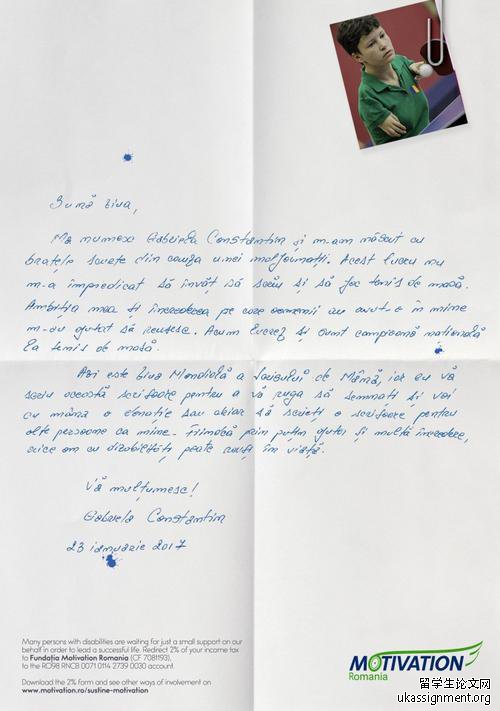 Bună ziua,
Mă numesc Gabriela Constantin și m-am născut cu
brațele scurte din cauza unei malformații. Acest lucru nu
m-a împiedicat să învăț să scriu și să joc tenis de masă.
Ambiția mea și încrederea pe care oamenii au avut-o în mine
m-au ajutat să reușesc. Acum lucrez și sunt campioană națională
la tenis de masă.
Azi este Ziua Mondială a Scrisului de Mână, iar eu vă
scriu această scrisoare pentru a vă ruga să semnați și voi
cu mâna o donație sau chiar să scrieți o scrisoare pentru
alte persoane ca mine. Fiindcă prin puțin ajutor și multă încredere,
orice om cu dizabilități poate reuși în viață.
Vă mulțumesc!
Gabriela Constantin
23 ianuarie 2017
Many persons with disabilities are waiting for just a small support on our
behalf in order to lead a successful life. Redirect 2% of your income tax
to Fundația Motivation Romania (CF 7081193),
to the RO98 RNCB 0071 0114 2739 0030 account.
Download the 2% form and see other ways of involvement on
www.motivation.ro/sustine-motivation
MOTIVATION
Romania
留学生论文网
ukassignment.org